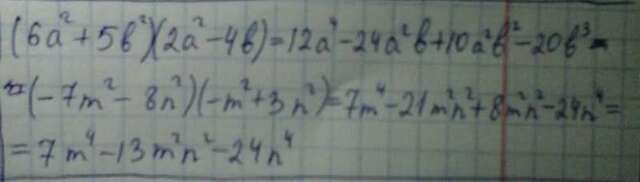 (6a²+5в²)(2a²-4в)=12a⁴-24a²в+10a²в²-20в³=
=(-7m²-8n²)(-m²+3n²)=7m⁴-21m²n²+8m²n²-24n⁴=
=7m⁴-13m²n²-24n⁴